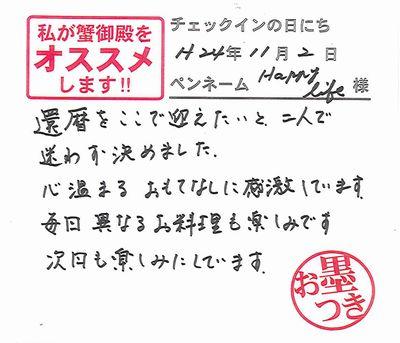 私が蟹御殿を
オススメ
します!!
チェックインの日にち
H24年11月2日
ペンネーム Happy life 様
還暦をここで迎えたいと、二人で
迷わず決めました。
心温まる おもてなしに感激しています
毎日 異なるお料理も楽しみです
次回も楽しみにしています。
お墨つき